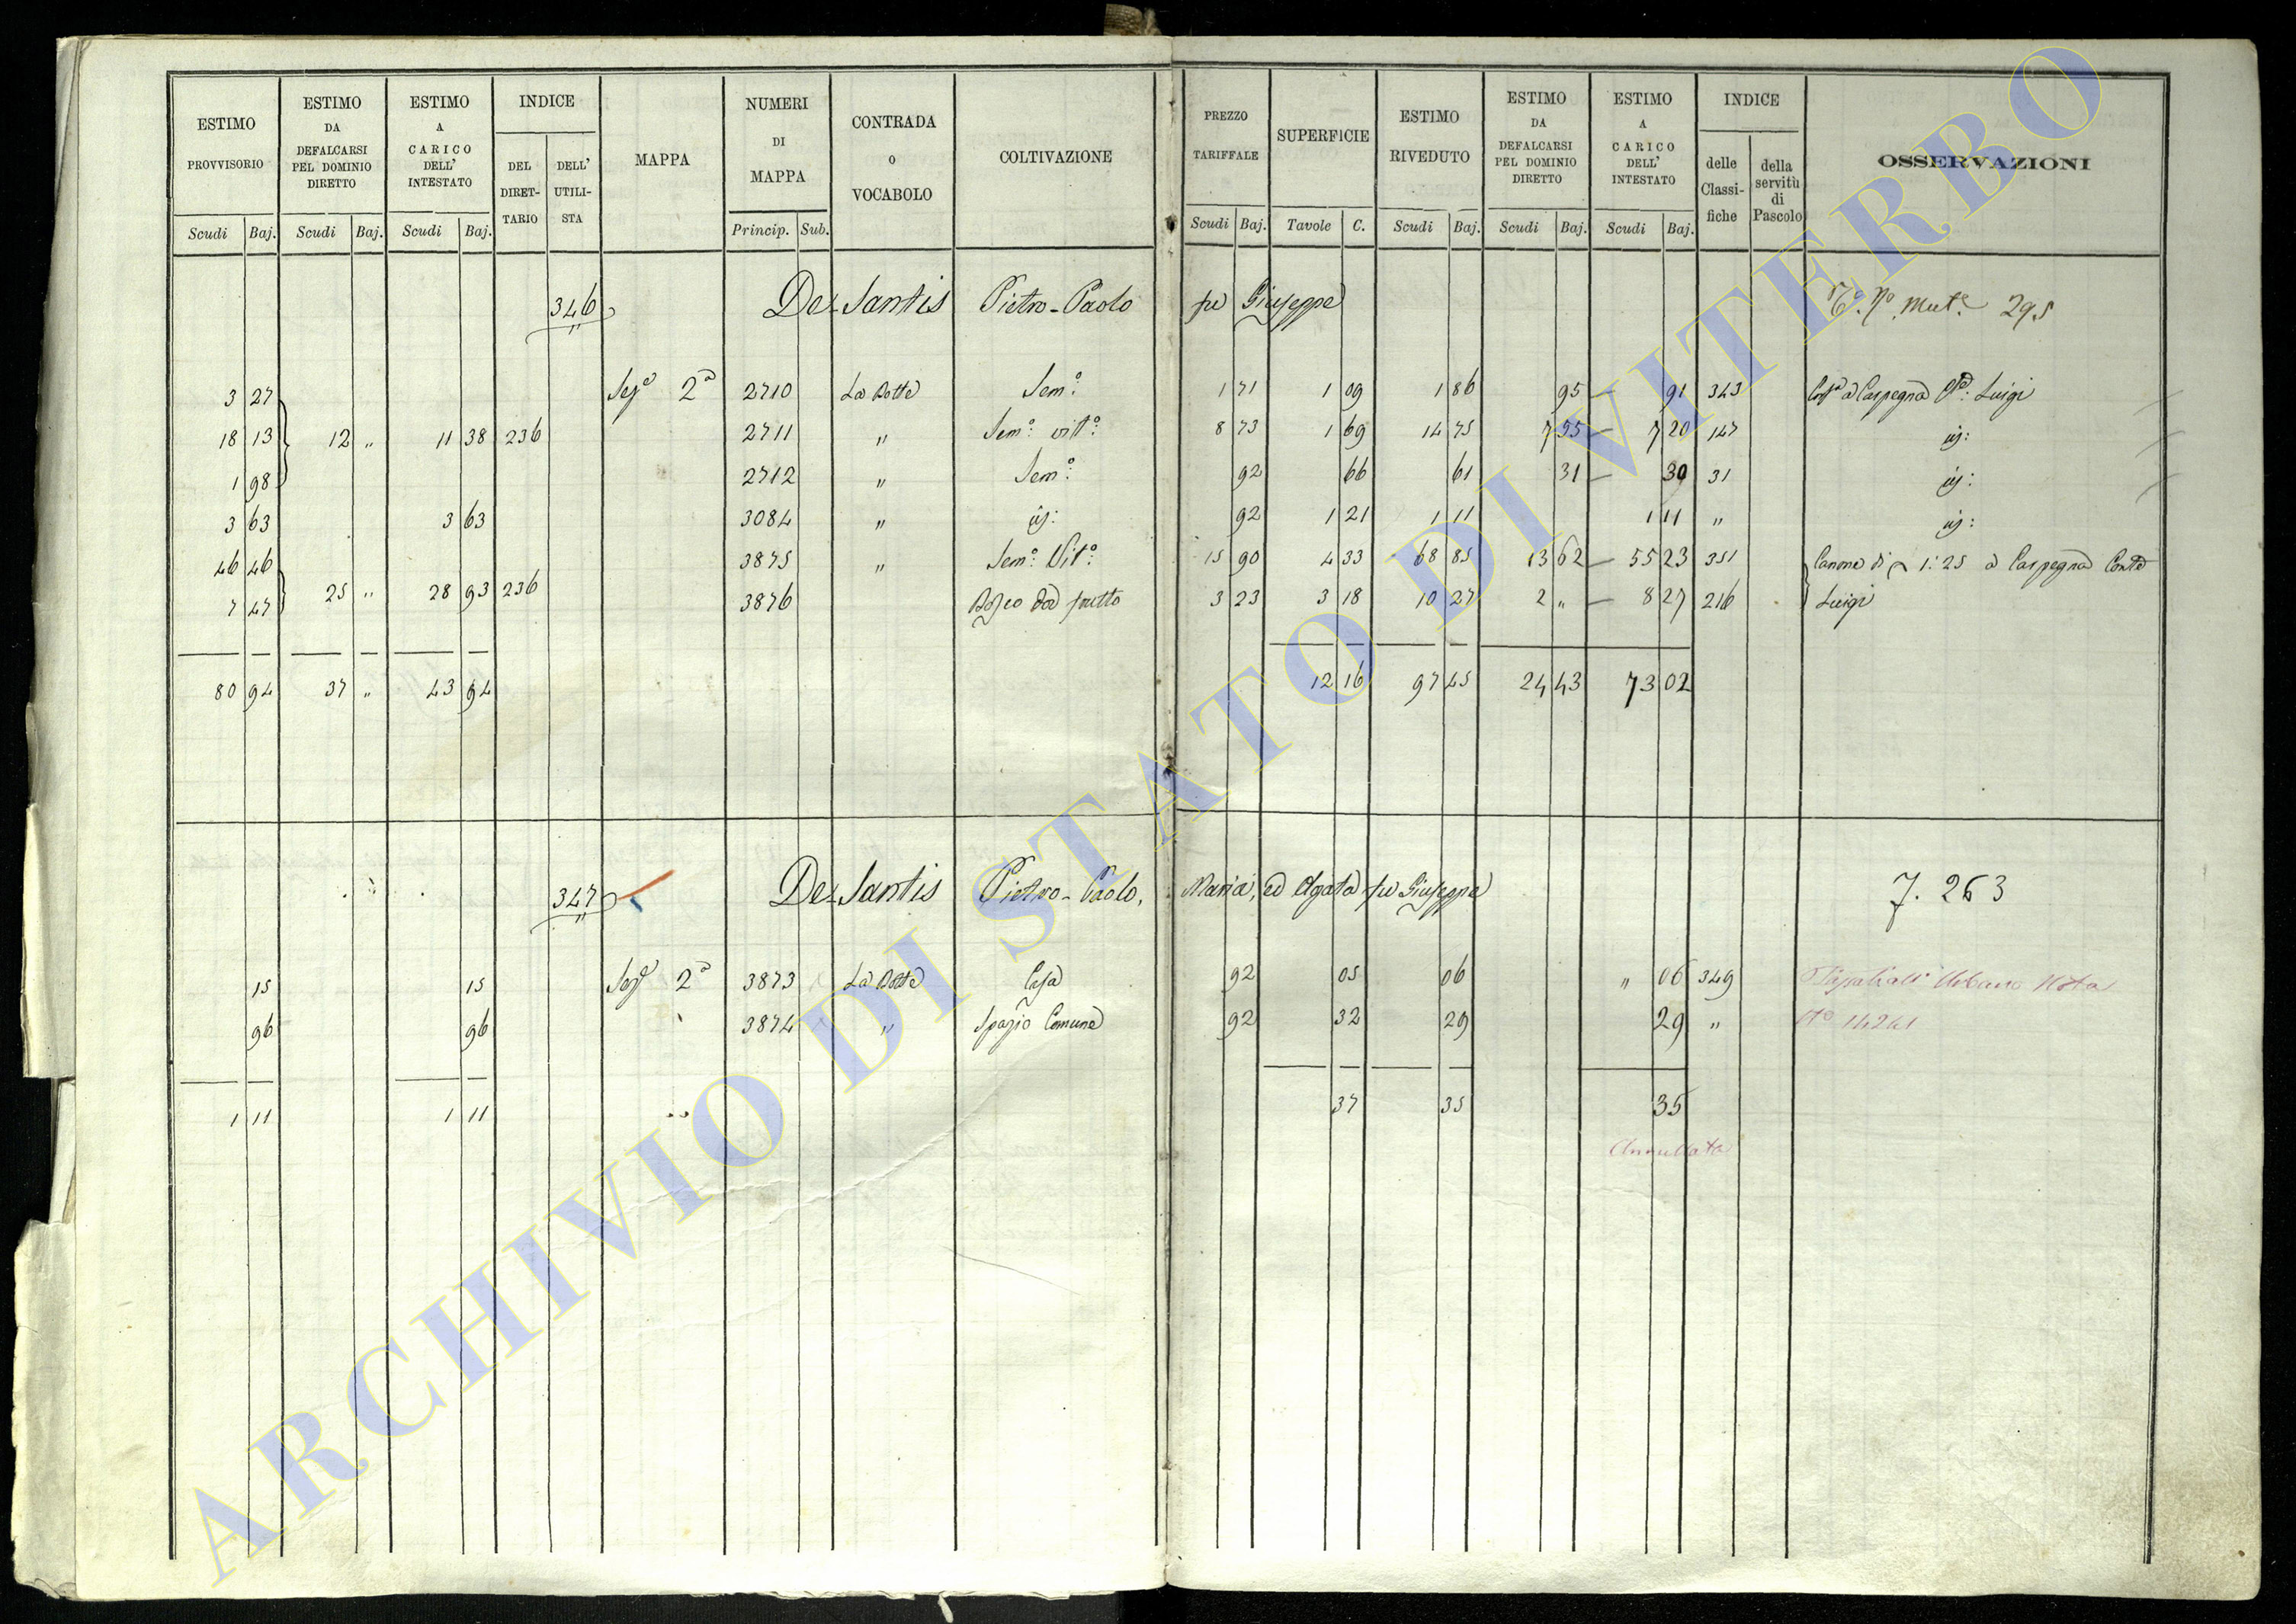 ESTIMO PROVVISORIO Scudi Baj.
ESTIMO DA DEFALCARSI PEL DOMINIO DIRETTO Scudi Baj.
ESTIMO A CARICO DELL' INTESTATO Scudi Baj.
INDICE DEL DIRETTARIO DELL' UTILISTA
MAPPA
NUMERI DI MAPPA Princip. Sub.
CONTRADA O VOCABOLO
COLTIVAZIONE
PREZZO TARIFFALE Scudi Baj.
SUPERFICIE Tavole C.
ESTIMO RIVEDUTO Scudi Baj.
ESTIMO DA DEFALCARSI PEL DOMINIO DIRETTO Scudi Baj.
ESTIMO A CARICO DELL' INTESTATO Scudi Baj.
INDICE delle Classifiche della servitù di Pascolo
OSSERVAZIONI
346 De Santis Pietro-Paolo fu Giuseppe 295
3 27 Sez.e 2a 2710 La Botte Sem.o 1 71 1 09 1 86 95 — 91 343 Carpegna Luigi
18 13 12 „ 11 38 236 2711 „ Sem.o vit.o 8 73 1 69 14 75 7 55 — 7 20 147
1 98 2712 „ Sem.o 92 66 61 31 — 30 31
3 63 3 63 3084 „ 92 1 21 1 11 1 11 „
46 46 3875 „ Sem.o Vit.o 15 90 4 33 68 85 13 62 — 55 23 351 Canone di 1:25 a Carpegna Conte
7 47 25 „ 28 93 236 3876 Bosco da frutto 3 23 3 18 10 27 2 „ — 8 27 216 Luigi
80 94 37 „ 43 94 12 16 97 45 24 43 73 02
347 De Santis Pietro-Paolo, Maria, ed Agata fu Giuseppe 7. 263
15 15 Sez.e 2a 3873 La Botte Casa 92 05 06 „ 06 349 Urbano Nota
96 96 3874 „ Spazio Comune 92 32 29 29 „
1 11 1 11 37 35 35
Annullata
ARCHIVIO DI STATO DI VITERBO